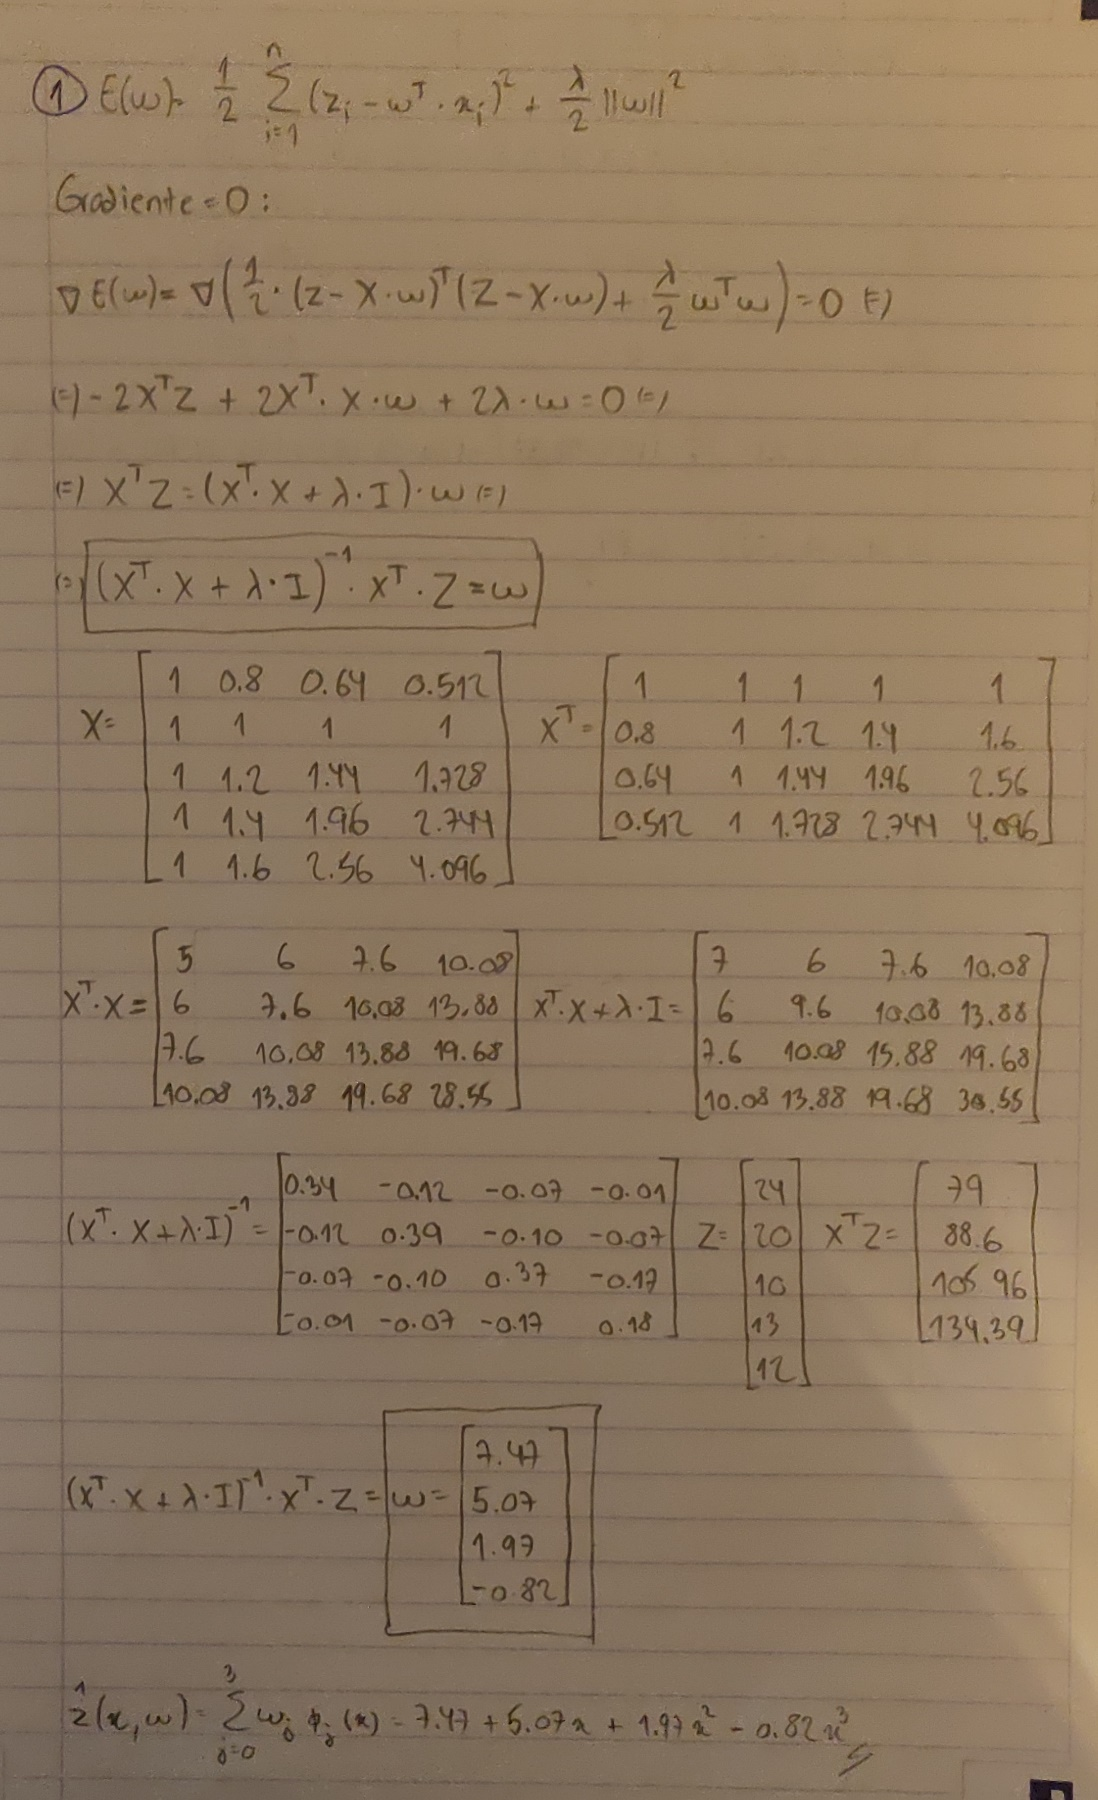 ① E(w)= 1/2 ∑_{i=1}^{n} (z_i - w^T · x_i)^2 + λ/2 ||w||^2
Gradiente = 0 :
∇E(w)= ∇(1/2 · (z - X·w)^T (z - X·w) + λ/2 w^T w) = 0 (=)
(=) - 2X^T z + 2X^T · X · w + 2λ · w = 0 (=)
(=) X^T z = (X^T · X + λ · I) · w (=)
(=) (X^T · X + λ · I)^{-1} · X^T · z = w
X = [1 0.8 0.64 0.512
1 1 1 1
1 1.2 1.44 1.728
1 1.4 1.96 2.744
1 1.6 2.56 4.096]
X^T = [1 1 1 1 1
0.8 1 1.2 1.4 1.6
0.64 1 1.44 1.96 2.56
0.512 1 1.728 2.744 4.096]
X^T · X = [5 6 7.6 10.08
6 7.6 10.08 13.88
7.6 10.08 13.88 19.68
10.08 13.88 19.68 28.55]
X^T · X + λ · I = [7 6 7.6 10.08
6 9.6 10.08 13.88
7.6 10.08 15.88 19.68
10.08 13.88 19.68 30.55]
(X^T · X + λ · I)^{-1} = [0.34 -0.12 -0.07 -0.01
-0.12 0.39 -0.10 -0.07
-0.07 -0.10 0.37 -0.17
-0.01 -0.07 -0.17 0.18]
z = [24
20
10
13
12]
X^T z = [79
88.6
105.96
134.39]
(X^T · X + λ · I)^{-1} · X^T · z = w = [7.47
5.07
1.97
-0.82]
ẑ(x,w) = ∑_{j=0}^{3} w_j ϕ_j (x) = 7.47 + 5.07x + 1.97x^2 - 0.82x^3